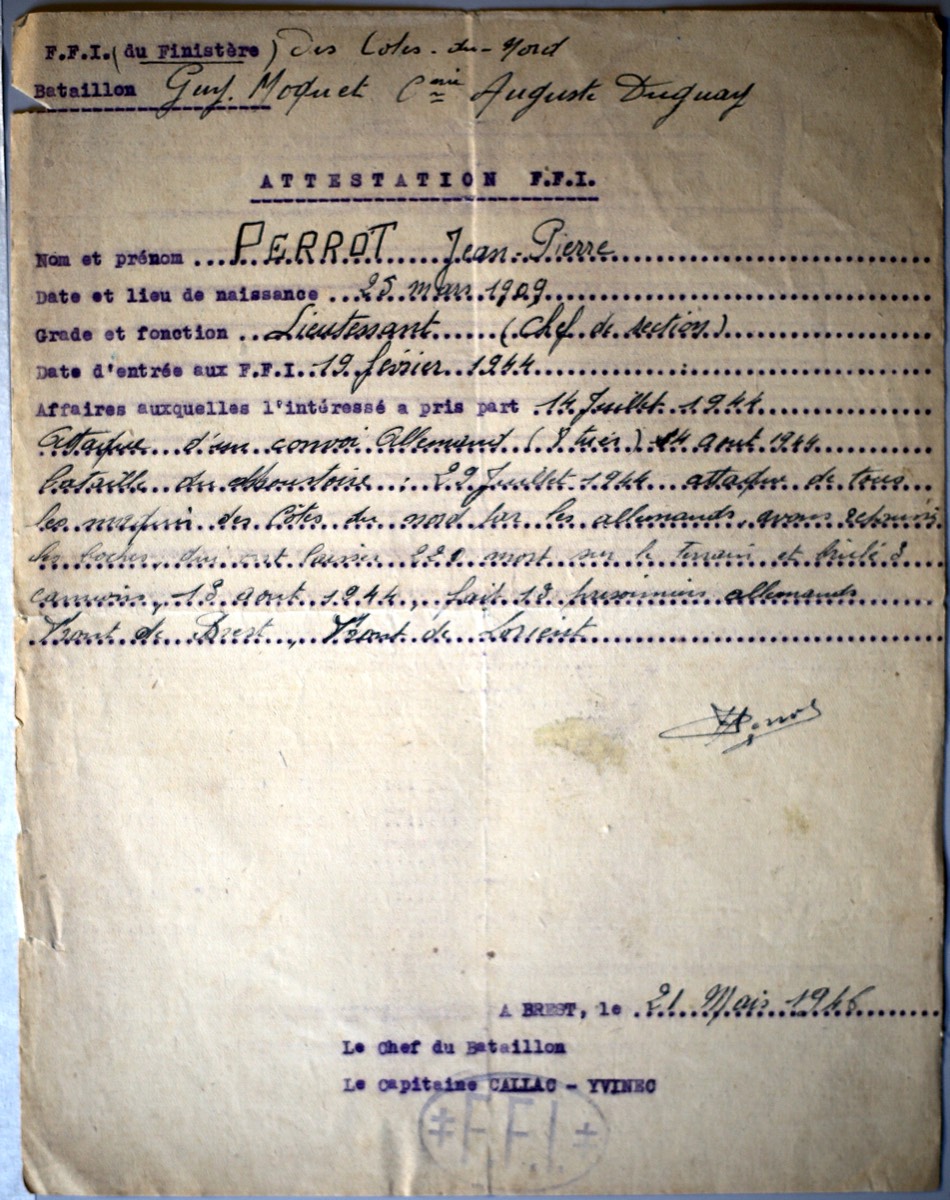 F.F.I. (du Finistère) Des Côtes-du-Nord
Bataillon Guy. Moquet Cnie Auguste Duguay
ATTESTATION F.F.I.
Nom et prénom ... PERROT Jean-Pierre
Date et lieu de naissance ... 25 mars 1909
Grade et fonction .. Lieutenant (Chef de section)
Date d'entrée aux F.F.I. .. 19 février 1944
Affaires auxquelles l'intéressé a pris part 14 Juillet 1944
Attaque d'un convoi Allemand ( tués) 14 aout 1944
bataille du Moustoire : 29 Juillet 1944 attaque de tous
les maquis des Côtes du nord par les allemands, avons
les boches, qui ont laisser mort sur le terrain et brulé 3
camions, 13 aout 1944, fait 13 prisonniers allemands
Front de Brest, Front de Lorient
A BREST, le 21 Mars 1946
Le Chef du Bataillon
Le Capitaine CALLAC - YVINEC
FFI